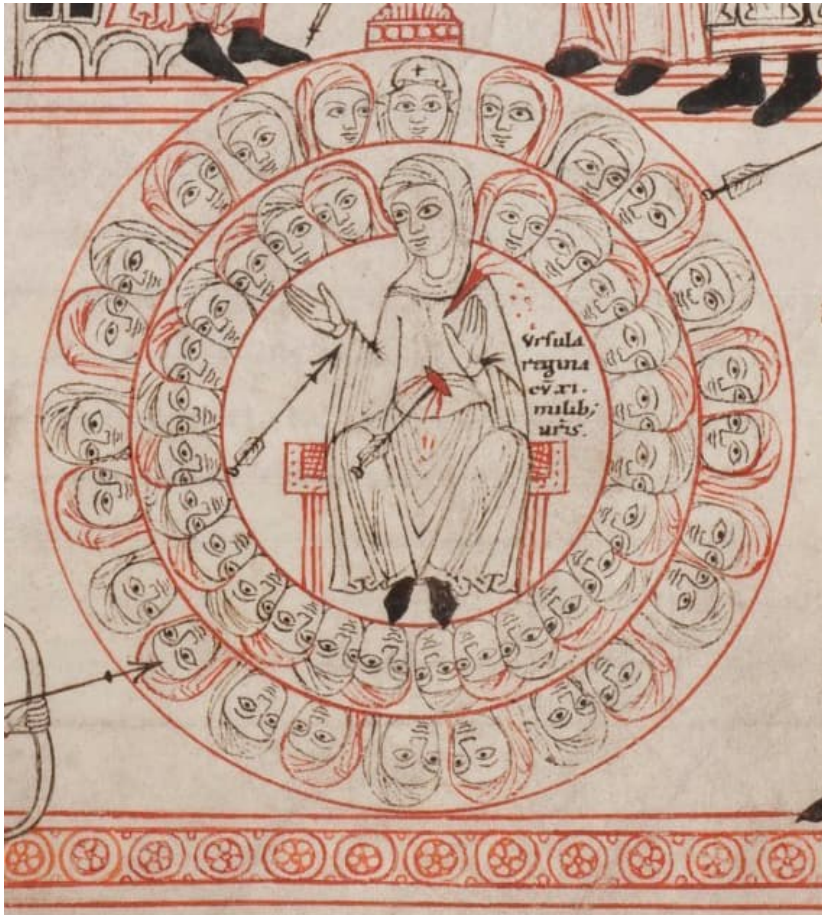 Vrsula
regina
cv̄ .xi.
milib;
uir̄s.